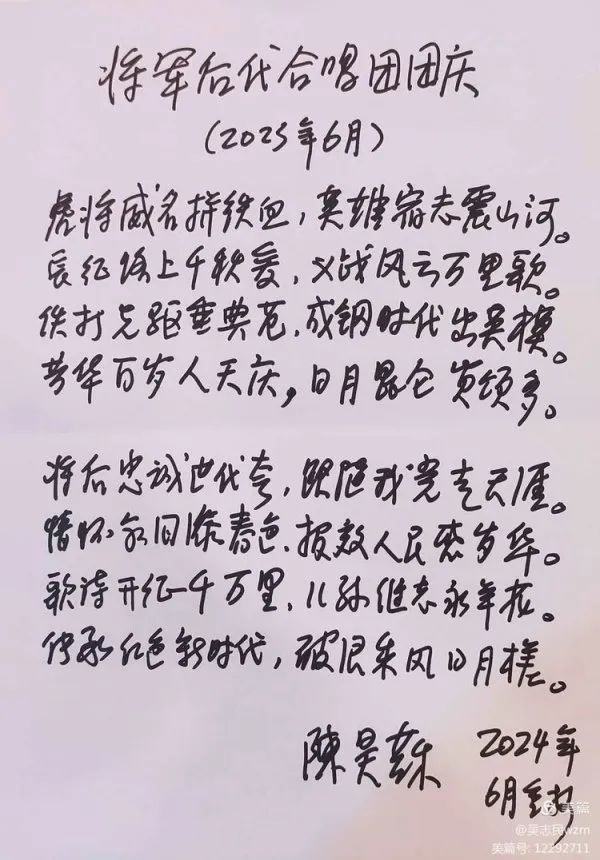 将军后代合唱团团庆
(2025年6月)
虎将威名捍铁血，英雄宿志震山河。
长征路上千秋爱，义战风云万里歌。
铁打先驱垂典范，成钢时代出英模。
芳华百岁人天庆，日月昆仑赞颂多。
将后忠诚世代夸，跟随我党走天涯。
情怀永旧添春色，报效人民恋岁华。
歌诗开征千万里，儿孙继志永年
传承红色新时代，破浪乘风日月槎。
陈昊苏 2024年
6月
美篇
@吴志民wzm
美篇号: 12292711